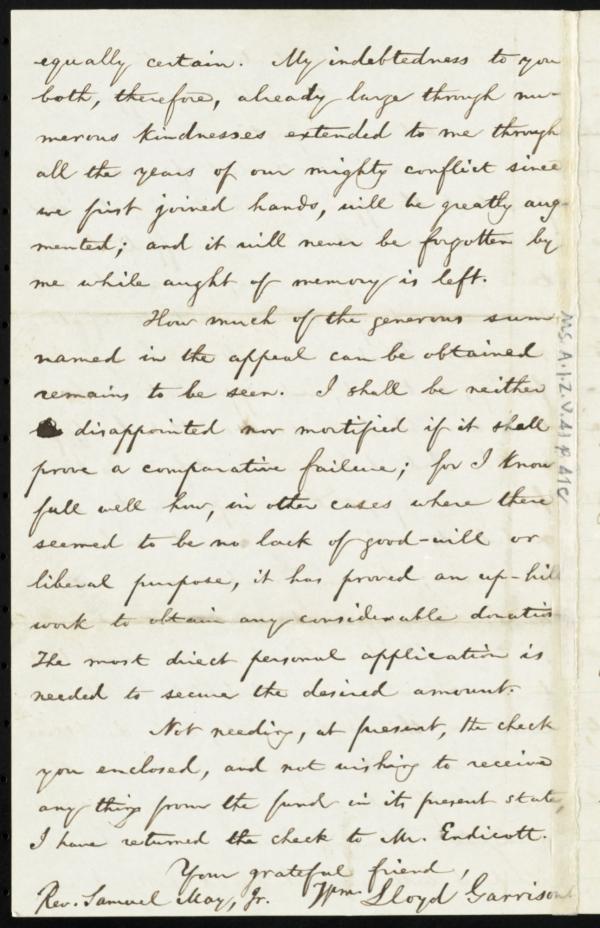 equally certain. My indebtedness to you
both, therefore, already large through nu-
merous kindnesses extended to me through
all the years of our mighty conflict since
we first joined hands, will be greatly aug-
mented; and it will never be forgotten by
me while aught of memory is left.
How much of the generous sum
named in the appeal can be obtained
remains to be seen. I shall be neither
disappointed nor mortified if it shall
prove a comparative failure; for I know
full well how, in other cases where there
seemed to be no lack of good-will or
liberal purpose, it has proved an up-hill
work to obtain any considerable donation
The most direct personal application is
needed to secure the desired amount.
Not needing, at present, the check
you enclosed, and not wishing to receive
any thing from the fund in its present state,
I have returned the check to Mr. Endicott.
Your grateful friend,
Rev. Samuel May, Jr. Wm. Lloyd Garrison
MS. A.1.2. V.41 p. 41C